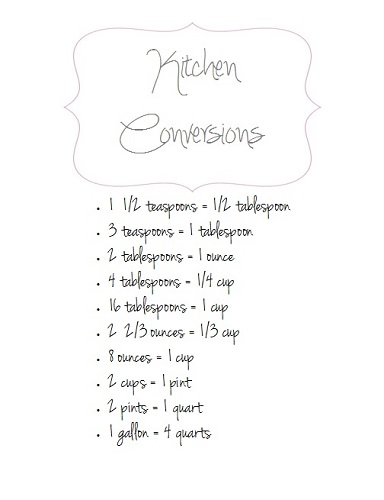 Kitchen
Conversions
• 1 1/2 teaspoons = 1/2 tablespoon
• 3 teaspoons = 1 tablespoon
• 2 tablespoons = 1 ounce
• 4 tablespoons = 1/4 cup
• 16 tablespoons = 1 cup
• 2 2/3 ounces = 1/3 cup
• 8 ounces = 1 cup
• 2 cups = 1 pint
• 2 pints = 1 quart
• 1 gallon = 4 quarts